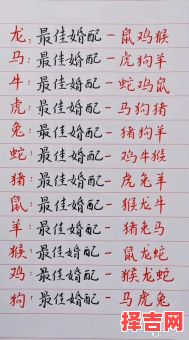 龙:最佳婚配-鼠鸡猴
马:最佳婚配-虎狗羊
牛:最佳婚配-蛇鸡鼠
虎:最佳婚配-马狗猪
兔:最佳婚配-猪狗羊
蛇:最佳婚配-鸡牛猴
猪:最佳婚配-虎兔羊
鼠:最佳婚配-猴龙牛
羊:最佳婚配-猪兔马
猴:最佳婚配-鼠龙蛇
鸡:最佳婚配-猴龙蛇
狗:最佳婚配-马虎兔
择吉网